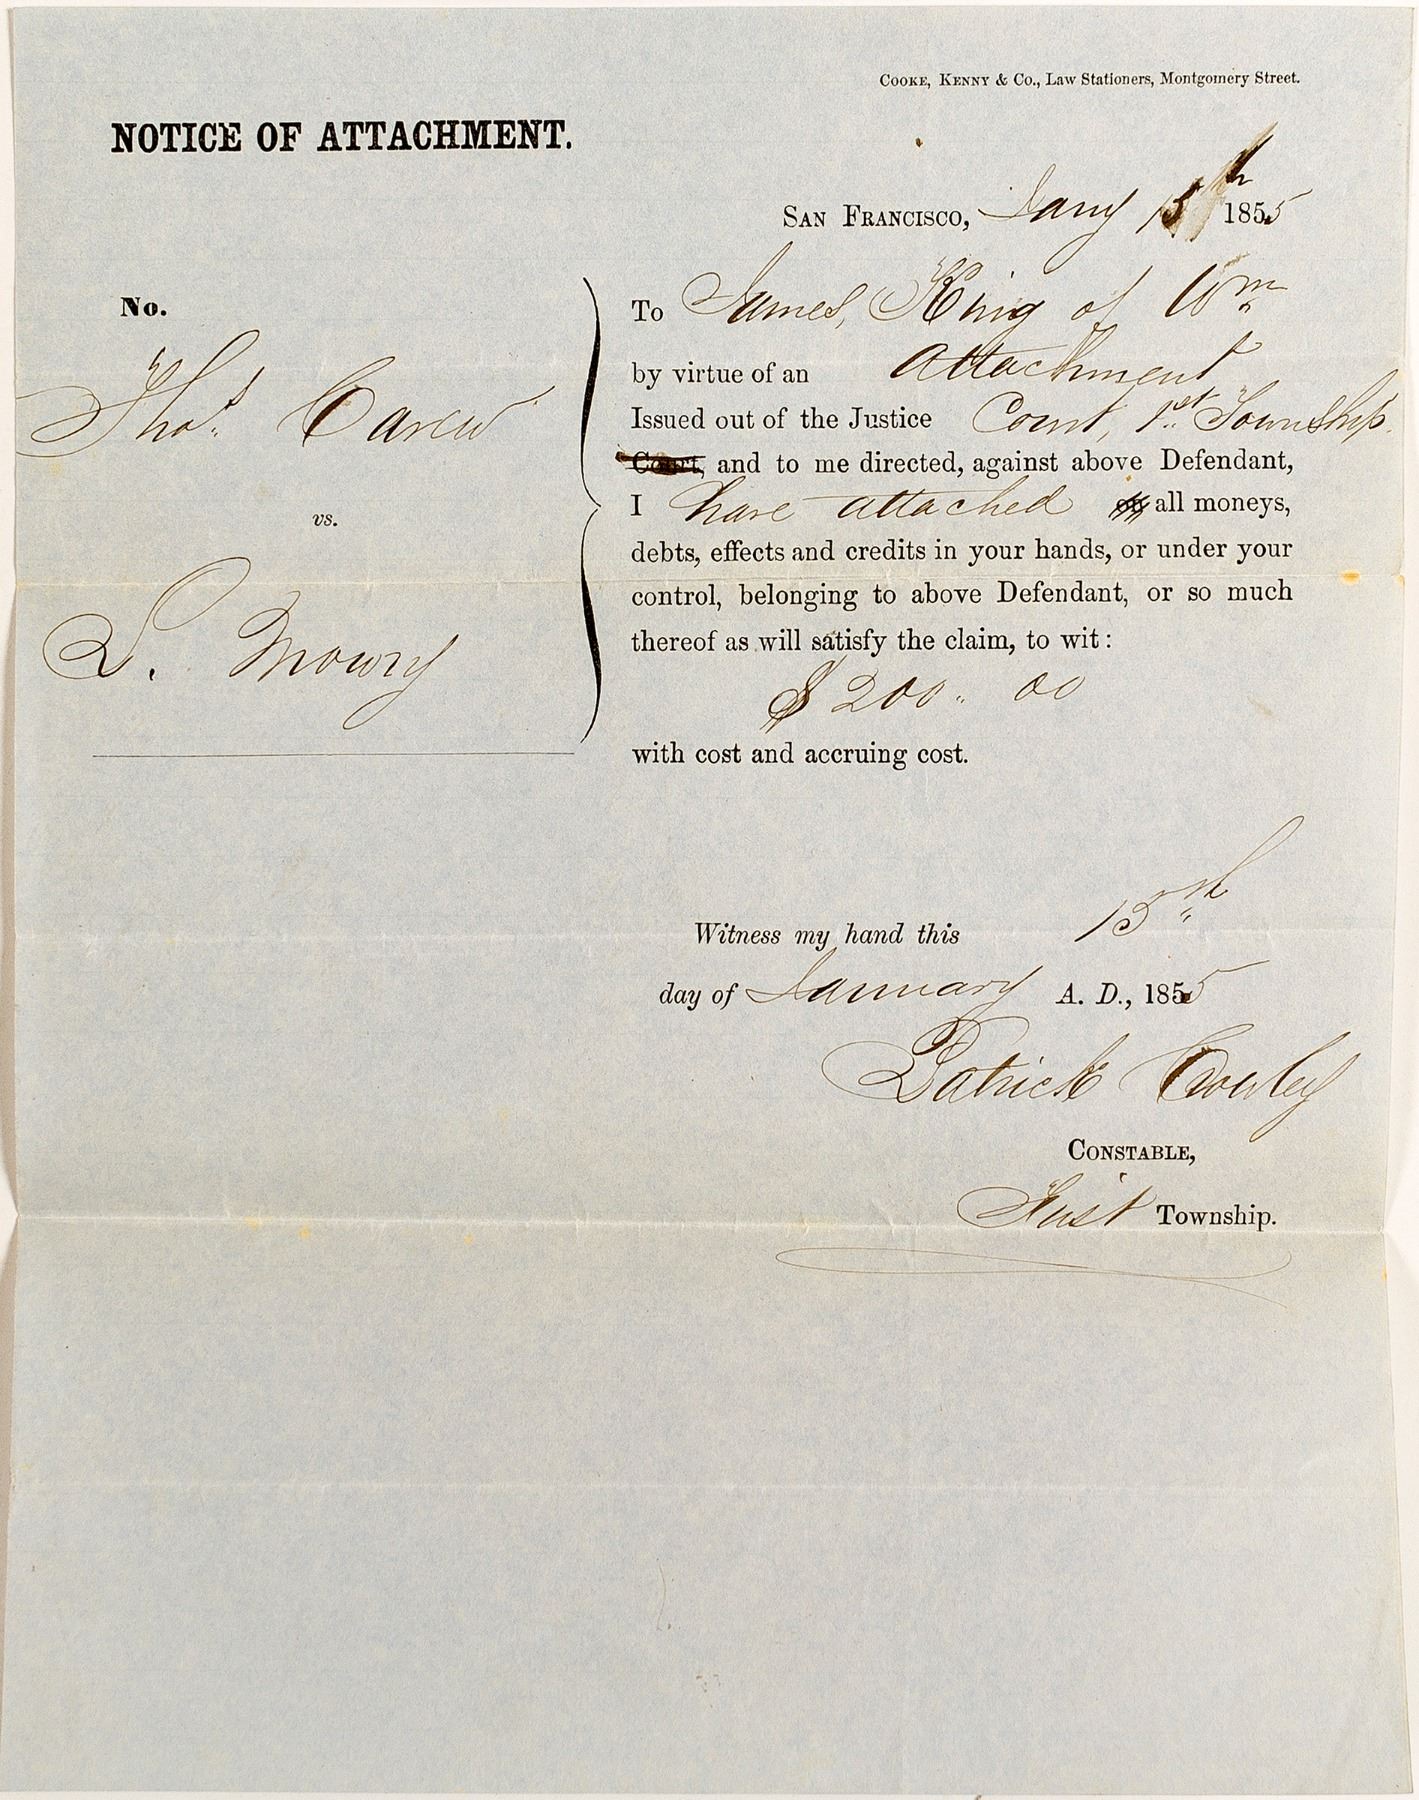 COOKE, KENNY & Co., Law Stationers, Montgomery Street.
NOTICE OF ATTACHMENT.
SAN FRANCISCO, Jany 15th 1855
No.
Thos. Carew
vs.
S. Mowry
To James, King of Wm
by virtue of an attachment
Issued out of the Justice Court, 1st Township
Court, and to me directed, against above Defendant,
I have attached on all moneys,
debts, effects and credits in your hands, or under your
control, belonging to above Defendant, or so much
thereof as will satisfy the claim, to wit:
$200.. 00
with cost and accruing cost.
Witness my hand this 15th
day of January A. D., 1855
Patrick Crowley
CONSTABLE,
First Township.